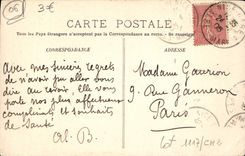 06
3€
CARTE POSTALE
Tous les Pays étrangers n'acceptent pas la Correspondance au recto.
CORRESPONDANCE
ADRESSE
Avec mes sincères regrets
de n'avoir pu allés vous dire
au revoir. Elle vous
porte nos plus affectueux
compliments et souhaits
de Santé
Al. B.
Madame Gaurion
9, Rue Ganneron
Paris
Lot 1117/CHG